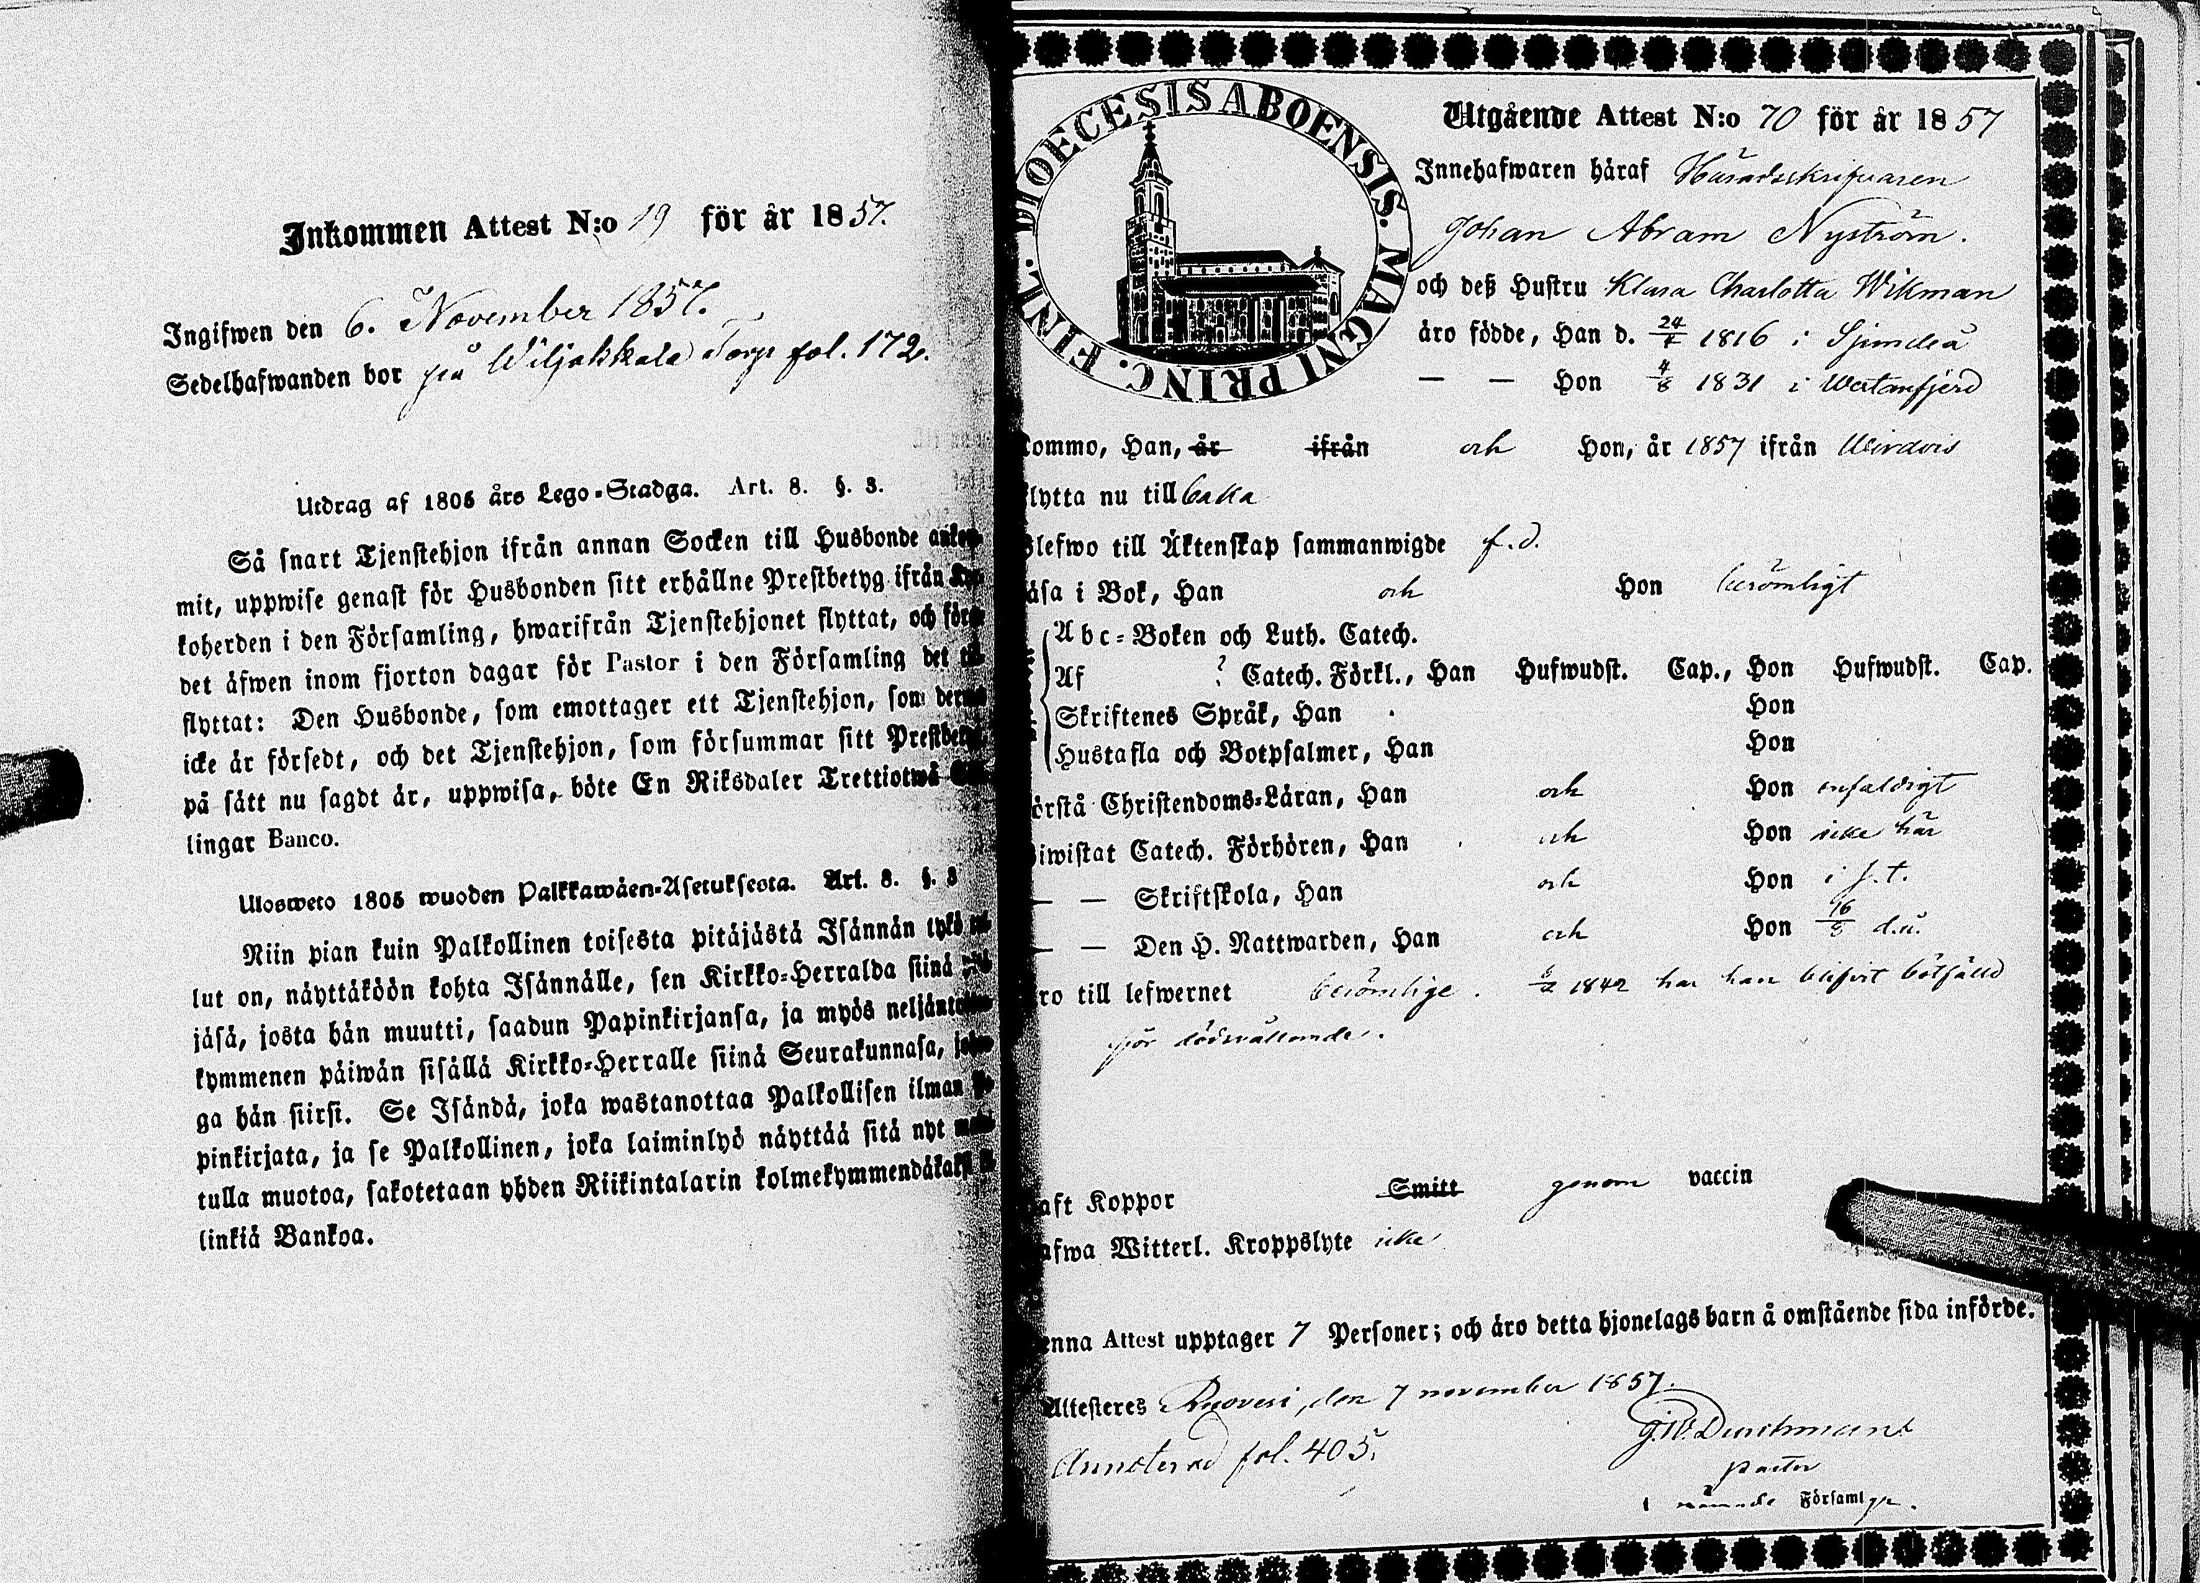 Inkommen Attest N:o 19 för år 1857.
Ingifwen den 6. November 1857.
Sedelhafwanden bor på Wiljakkala Torp fol. 172.
Utdrag af 1805 års Lego-Stadga. Art. 8. §. 3.
Så snart Tjenstehjon ifrån annan Socken till Husbonde
mit, uppwise genast för Husbonden sitt erhållne Prestbetyg ifrån
koherden i den Församling, hwarifrån Tjenstehjonet flyttat, och
det äfwen inom fjorton dagar för Pastor i den Församling det
flyttat: Den Husbonde, som emottager ett Tjenstehjon, som
icke är försedt, och det Tjenstehjon, som försummar sitt
på sätt nu sagdt är, uppwisa, böte En Riksdaler Trettiotwå
lingar Banco.
Ulosweto 1805 wuoden Palkkawäen-Asetuksesta. Art. 8. §. 3
Niin pian kuin Palkollinen toisesta pitäjästä Isännän tykö
lut on, näyttäköön kohta Isännälle, sen Kirkko-Herralda siinä
jäsä, josta hän muutti, saadun Papinkirjansa, ja myös
kymmenen päiwän sisällä Kirkko-Herralle siinä Seurakunnasa,
ga hän siirsi. Se Isändä, joka wastanottaa Palkollisen ilman
pinkirjata, ja se Palkollinen, joka laiminlyö näyttää sitä nyt
tulla muotoa, sakotetaan yhden Riikintalarin
linkiä Bankoa.
DIOECESIS ABOENSIS. MAGNI PRINC. FINL.
Utgående Attest N:o 70 för år 1857
Innehafwaren häraf Häradsskrifvaren
Johan Abram Nyström.
och deß Hustru Klara Charlotta Wikman
äro födde, Han d. 24/7 1816 i Sjundeå
— — Hon 4/8 1831 i Westanfjerd
kommo, Han, år ifrån och Hon, år 1857 ifrån Wirdois
flytta nu tillbaka
Blefwo till Äktenskap sammanwigde f. d.
läsa i Bok, Han och Hon berömligt
Abc-Boken och Luth. Catech.
Af ? Catech. Förkl., Han Hufwudst. Cap., Hon Hufwudst. Cap.
Skriftenes Språk, Han Hon
Hustafla och Botpsalmer, Han Hon
förstå Christendoms-Läran, Han och Hon enfaldigt
biwistat Catech. Förhören, Han och Hon icke här
— — Skriftskola, Han och Hon i s. t.
— — Den H. Nattwarden, Han och Hon 16/8 d. å.
äro till lefwernet berömlige. 6/2 1842 har han blifvit bötfälld
för dödvållande.
haft Koppor Smitt genom vaccin
hafwa Witterl. Kroppslyte icke
Denna Attest upptager 7 Personer; och äro detta hjonelags barn å omstående sida införde.
Attesteres Ruovesi, den 7 november 1857.
Annoterad fol. 405.
pastor
i nämnde Församl